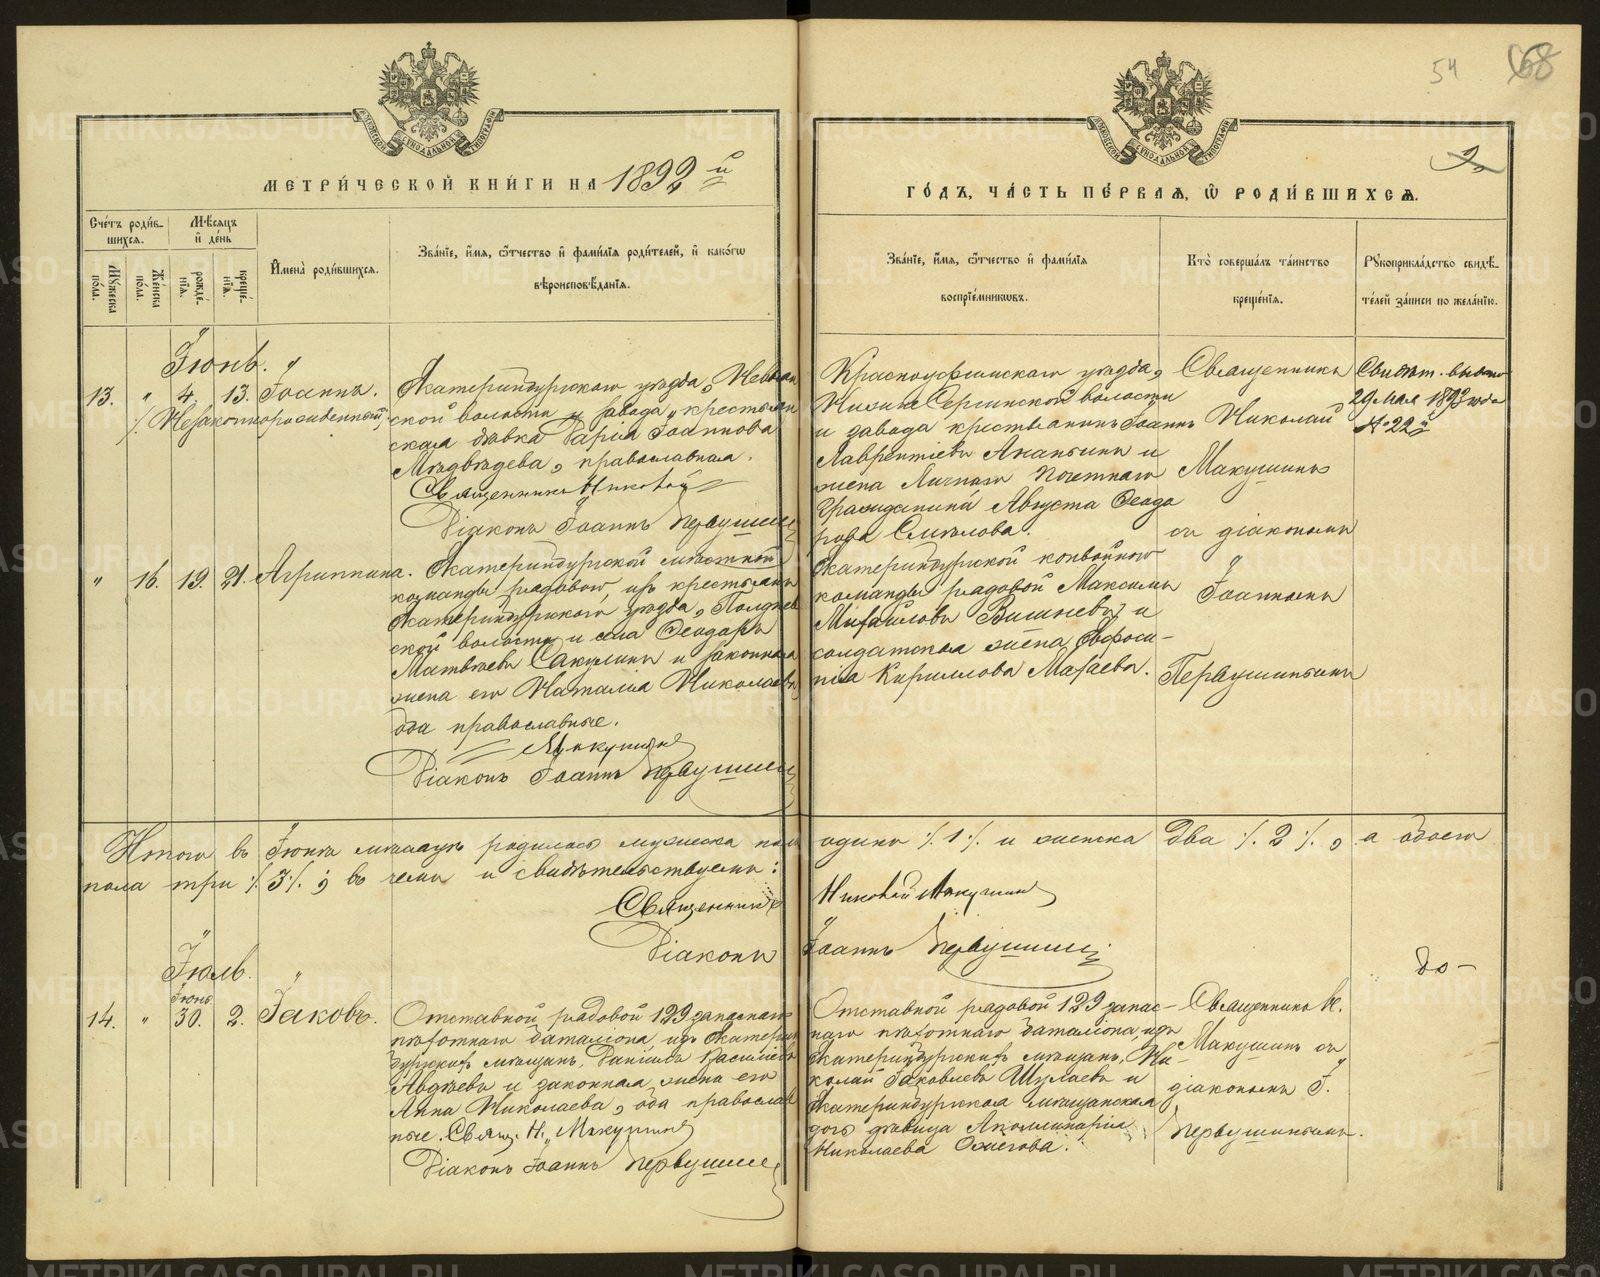 54 68
2
МЕТРИ́ЧЕСКОЙ КНИ́ГИ НА 1892й
ГО́ДЪ, ЧА́СТЬ ПЕ́РВАЯ, Ѡ РОДИ́ВШИХСѦ.
Сче́тъ роди́в-
шихся.
Мѣ́сяцъ
и҆ де́нь
Му́жеска
по́ла.
Же́нска
по́ла.
рожде́-
нїя.
креще́-
нїя.
И҆мена̀ роди́вшихся.
Зва́нїе, и҆́мя, ѻ҆́тчество и҆ фами́лїя роди́телей, и҆ како́гѡ
вѣроисповѣ́данїя.
Зва́нїе, и҆́мя, ѻ҆́тчество и҆ фами́лїя
воспрїе́мникѡвъ.
Кто̀ соверша́лъ та́инство
креще́нїя.
Рꙋкоприкла́дство свидѣ́-
телей за́писи по жела́нїю.
Іюнь.
13. " 4. 13. Іоаннъ.
/. Незаконнорожденный,
Екатеринбургскаго уѣзда, Невьян
ской волости и завода, крестьян
ская дѣвка Дарія Іоаннова
Медвѣдева, православная.
Священникъ Николай
Діаконъ Іоаннъ Первушинъ
Красноуфимскаго уѣзда,
Нижне Сергинской волости
и завода крестьянинъ Іоаннъ
Лаврентіевъ Ананьинъ и
жена Личнаго Почетнаго
Гражданина Августа Ѳеодо
рова
Священникъ
Николай
Макушинъ
съ діакономъ
Іоанномъ
Первушинымъ
Свидѣт. выдано
29 мая 1893 года
№ 22й
" 16. 19. 21. Агриппина.
Екатеринбургской мѣстной
команды рядовой, изъ крестьянъ
Екатеринбургскаго уѣзда, Полднев
ской волости и села Ѳеодоръ
Матвѣевъ Сакулинъ и законная
жена его Наталія Николаева
оба православные.
Макушинъ
Діаконъ Іоаннъ Первушинъ
Екатеринбургской конвойной
команды рядовой Максимъ
Михайловъ Вишневъ и
солдатская жена Евфоси-
нія Кириллова Мазаева.
Итого въ Іюнѣ мѣсяцѣ родилось мужска пола одинъ ·/.1·/. и женска два ·/.2·/., а обоего
пола три ·/.3·/.; въ чемъ и свидѣтельствуемъ:
Священникъ Николай Макушинъ
Діаконъ Іоаннъ Первушинъ
Іюль.
Іюнь
14. " 30. 2. Іаковъ.
Отставной рядовой 129 запаснаго
пѣхотнаго баталіона, изъ Екатерин
бургскихъ мѣщанъ, Даніилъ Василіевъ
Авдѣевъ и законная жена его
Анна Николаева, оба православ
ные. Свящ. Н. Макушинъ
Діаконъ Іоаннъ Первушинъ
Отставной рядовой 129 запас-
наго пѣхотнаго баталіона, изъ
Екатеринбургскихъ мѣщанъ, Ни-
колай Іаковлевъ Шулаевъ и
Екатеринбургская мѣщанская
дочь дѣвица Аполлинарія
Николаева Ожегова.
Священникъ Н.
Макушинъ съ
діакономъ І.
Первушинымъ.
до-